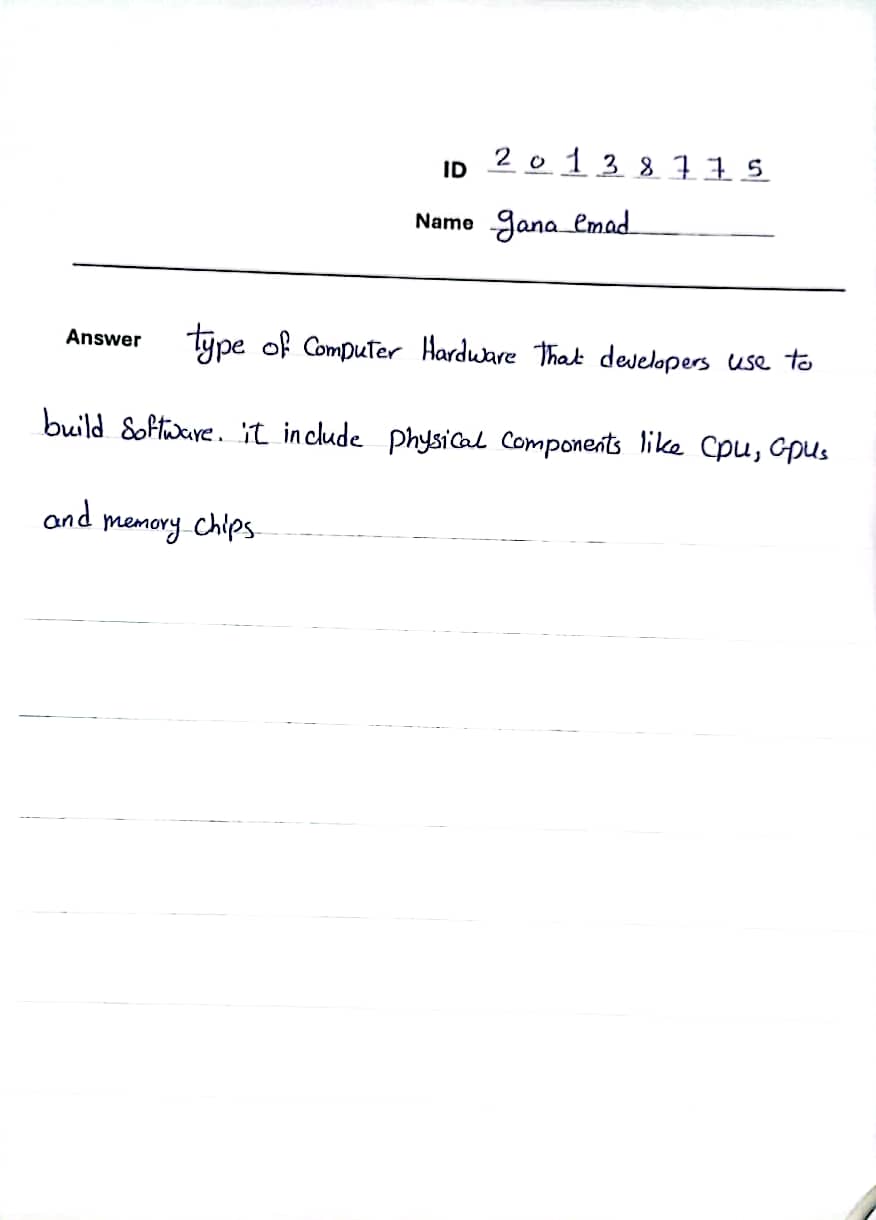 ID 2 0 1 3 8 7 7 5
Name gana emad
Answer type of Computer Hardware That developers use to
build Software. it include physical Components like Cpu, Gpus
and memory chips